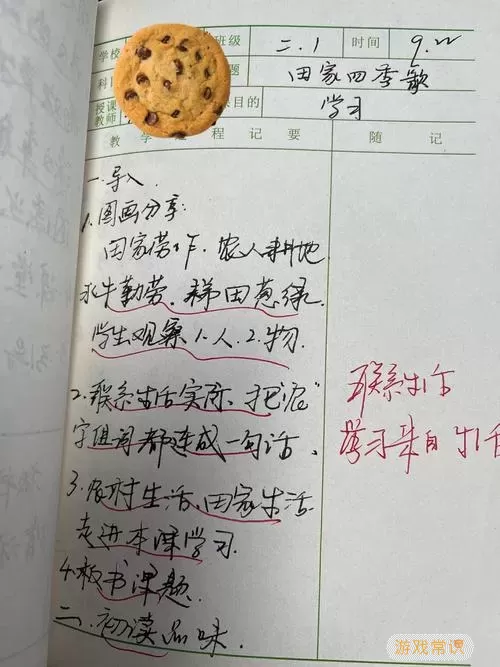 学校 班级 二.1 时间 9.22
科 题 田家四季歌
授课教师 课目的 学习
教 学 程 记 要 随 记
一.导入.
1.图画分享:
田家劳作.农人耕地
水牛勤劳.梯田葱绿.
学生观察.1.人.2.物.
2.联系生活实际.把"泥"
字组词都连成一句话.
联系生活
学习来自生活
3.农村生活.田家生活.
走进本课学习.
4.板书课题.
二.初读品味.
游戏常识